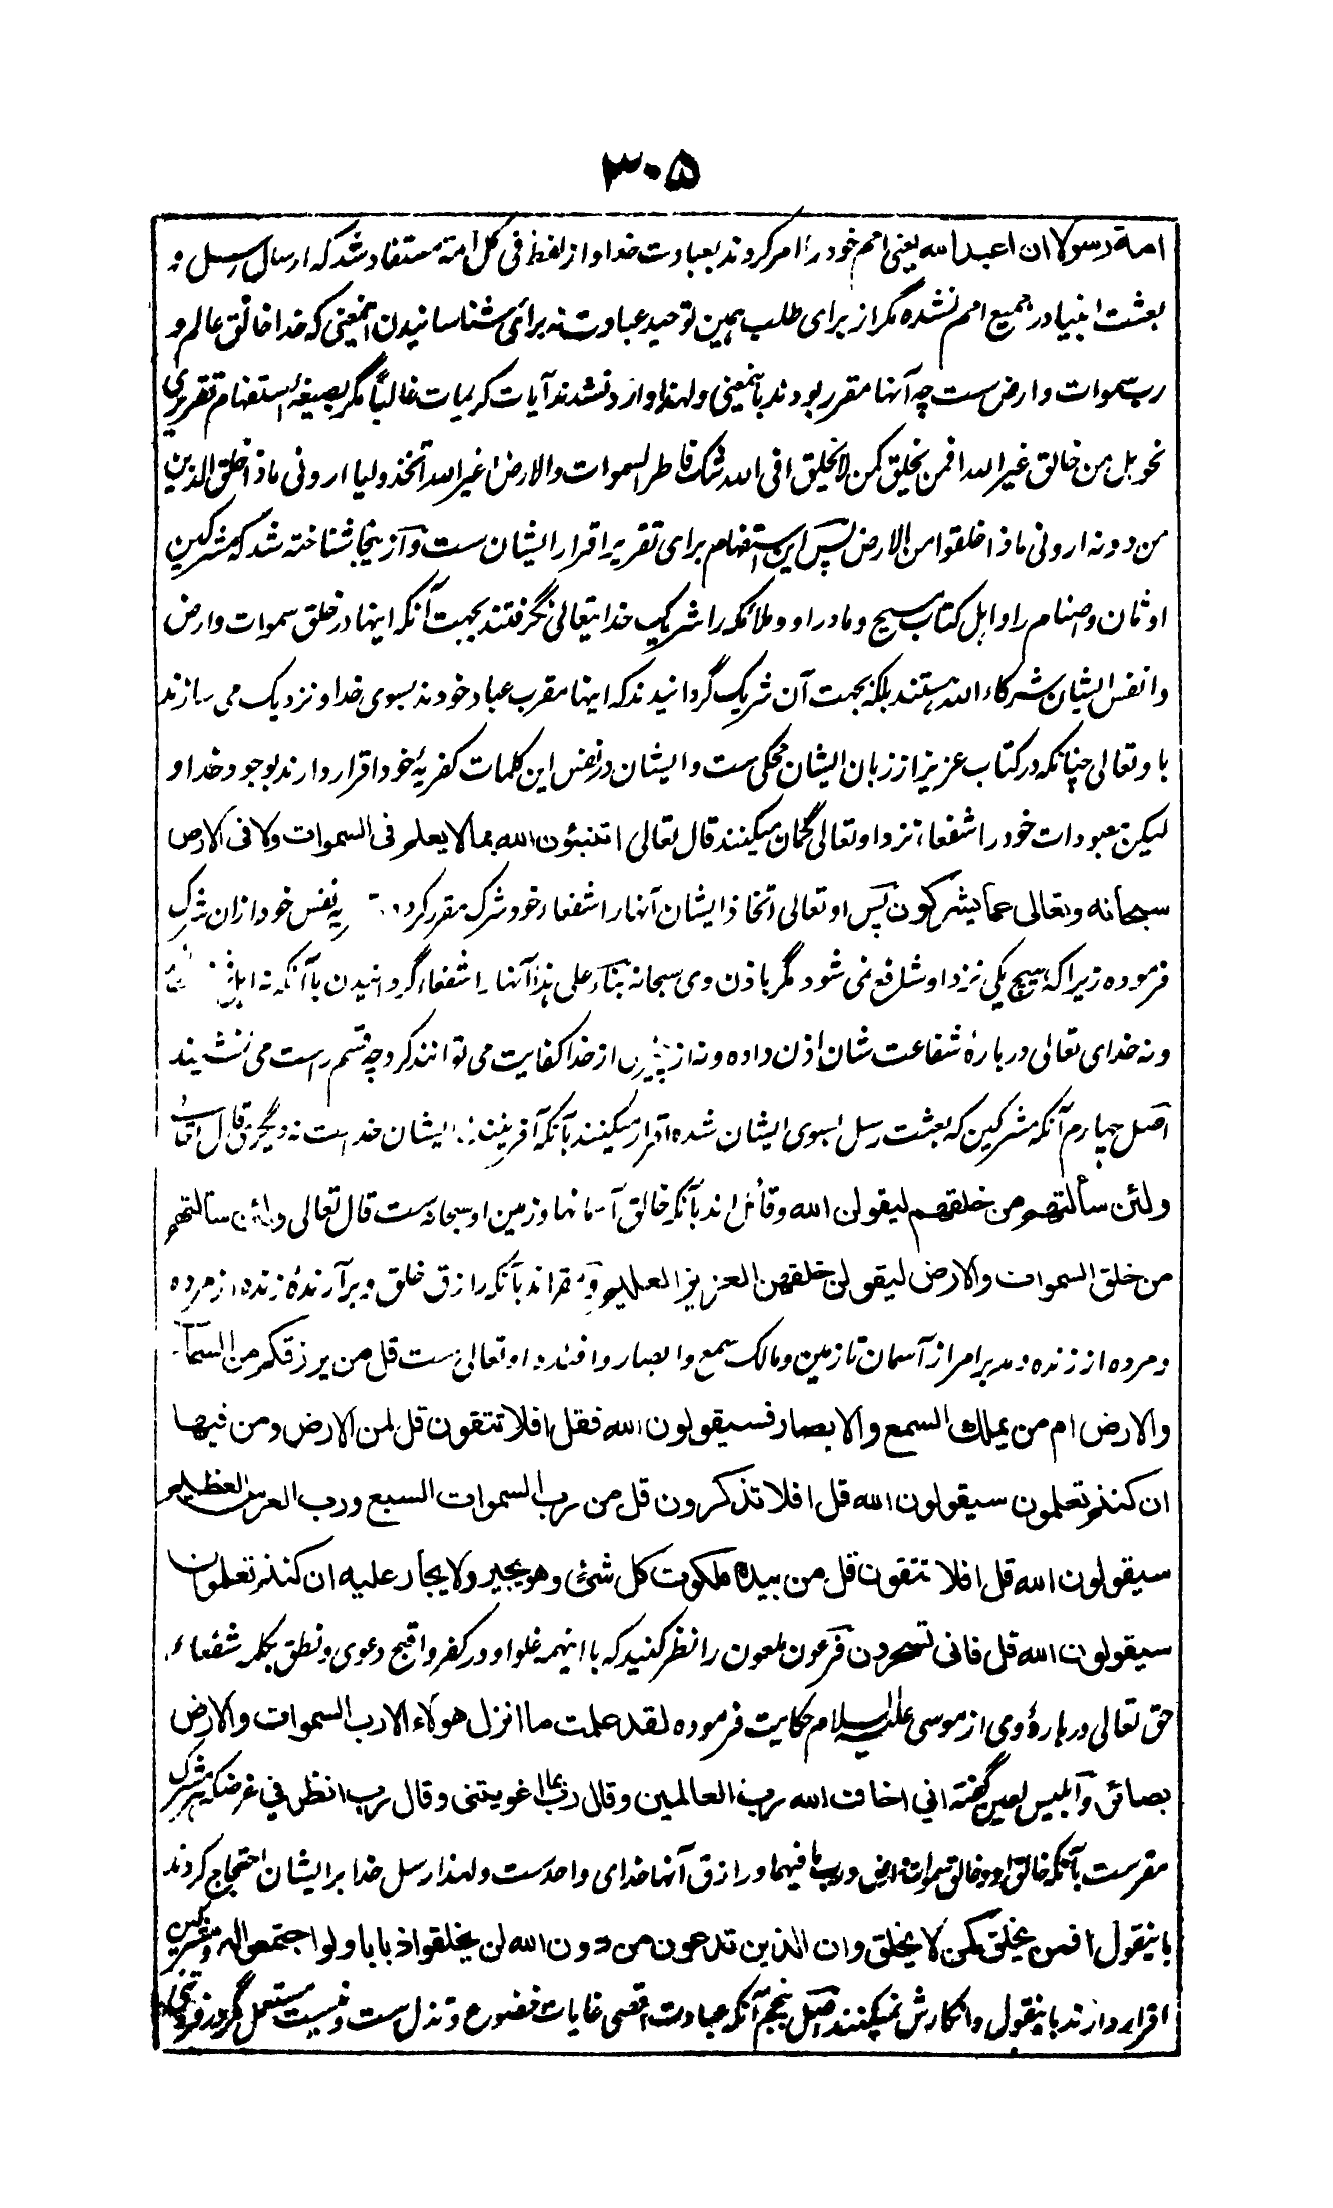 ۳۰۵
امة رسولا ان اعبدالله یعنی امم خود را امر کردند بعبادت خدا و از لفظ فی کل امة مستفاد شد که ارسال رسل و
بعثت انبیا در جمیع امم نشده مگر از برای طلب همین توحید عبادت نه برای شناسانیدن اینمعنی که خدا خالق عالم و
رب سموات و ارض ست چه آنها مقرر بودند باینمعنی ولهذا وارد نشدند آیات کریمات غالباً مگر بصیغهٔ استفهام تقریری
نحو بل من خالق غیر الله افمن یخلق کمن لا یخلق افی الله شک فاطر السموات والارض اغیر الله اتخذ ولیا ارونی ماذا خلق الذین
من دونه ارونی ماذا خلقوا من الارض پس این استفهام برای تقریر اقرار ایشان ست و از ینجا شناخته شد که مشرکین
اوثان و اصنام را و اهل کتاب مسیح و مادر او و ملائکه را شریک خدایتعالی نگرفتند بجهت آنکه اینها در خلق سموات و ارض
و انفس ایشان شرکاء الله هستند بلکه بجهت آن شریک گردانیدند که اینها مقرب عباد خودند بسوی خدا و نزدیک می سازند
باوتعالی چنانکه در کتاب عزیز از زبان ایشان محکی ست و ایشان در نفس این کلمات کفریهٔ خود اقرار دارند بوجود خدا و
لیکن معبودات خود را شفعاء نزد اوتعالی گمان میکنند قال تعالی اتنبئون الله بما لا یعلم فی السموات ولا فی الارض
سبحانه وتعالی عما یشرکون پس اوتعالی اتخاذ ایشان آنها را شفعاء خود شرک مقرر کرد یه نفس خود ازان شرک
فرموده زیرا که هیچ یکی نزد او شافع نمی شود مگر باذن وی سبحانه بناءً علی هذا آنها را شفعاء گردانیدن باآنکه نه
ونه خدای تعالی دربارهٔ شفاعت شان اذن داده و نه از از خدا کفایت می توانند کرد چه قسم راست می نشیند
اصل چهارم آنکه مشرکین که بعثت رسل بسوی ایشان شده اقرار میکنند بآنکه آفرینند ایشان خداست نه دیگری قال تعالی
ولئن سألتهم من خلقهم لیقولن الله و قائل اند بآنکه خالق آسمانها و زمین او سبحانه ست قال تعالی ولئن سالتهم
من خلق السموات والارض لیقولن خلقهن العزیز العلیم و مقر اند بآنکه رازق خلق و برآرندهٔ زنده از مرده
و مرده از زنده و مدبر امر از آسمان تا زمین و مالک سمع و ابصار و افئده اوتعالی ست قل من یرزقکم من السمآء
والارض ام من یملک السمع والابصار فسیقولون الله فقل افلا تتقون قل لمن الارض ومن فیها
ان کنتم تعلمون سیقولون الله قل افلا تذکرون قل من رب السموات السبع ورب العرش العظیم
سیقولون الله قل افلا تتقون قل من بیده ملکوت کل شئ وهو یجیر ولا یجار علیه ان کنتم تعلمون
سیقولون الله قل فانی تسحرون فرعون ملعون را نظر کنید که با اینهمه غلو او در کفر و اقبح دعوی و نطق بکلمه شنعاء
حق تعالی دربارهٔ وی از موسی علیه السلام حکایت فرموده لقد علمت ما انزل هولاء الا رب السموات والارض
بصائر و ابلیس لعین گفته انی اخاف الله رب العالمین وقال رب بما اغویتنی وقال رب انظرنی غرضکه هر مشرک
مقر ست بآنکه خالق او و خالق سموات و ارض و رب ما فیهما و رازق آنها خدای واحدست ولهذا رسل خدا بر ایشان احتجاج کردند
باینقول افمن یخلق کمن لا یخلق وان الذین تدعون من دون الله لن یخلقوا ذبابا ولو اجتمعوا له و مشرکین
اقرار دارند باینقول و انکارش نمیکنند اصل پنجم آنکه عبادت اقصی غایات خضوع و تذلل ست و نیست مستعمل مگر در